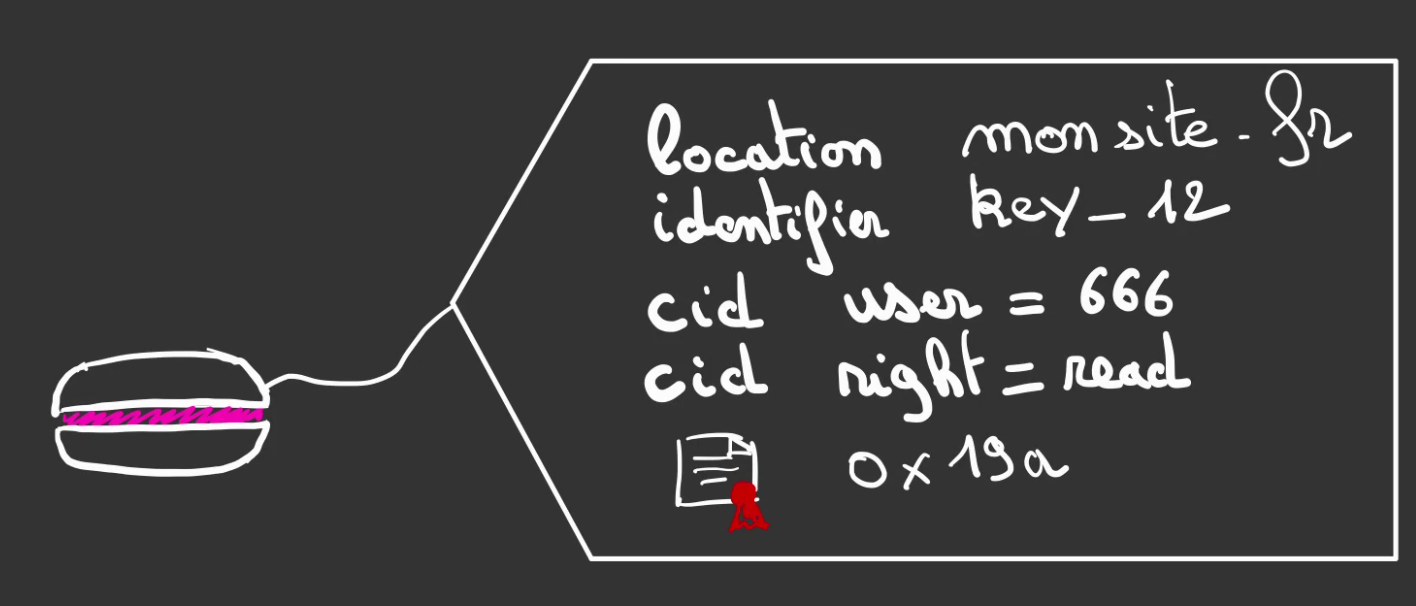 location monsite.fr
identifier key_12
cid user = 666
cid right = read
0x19a